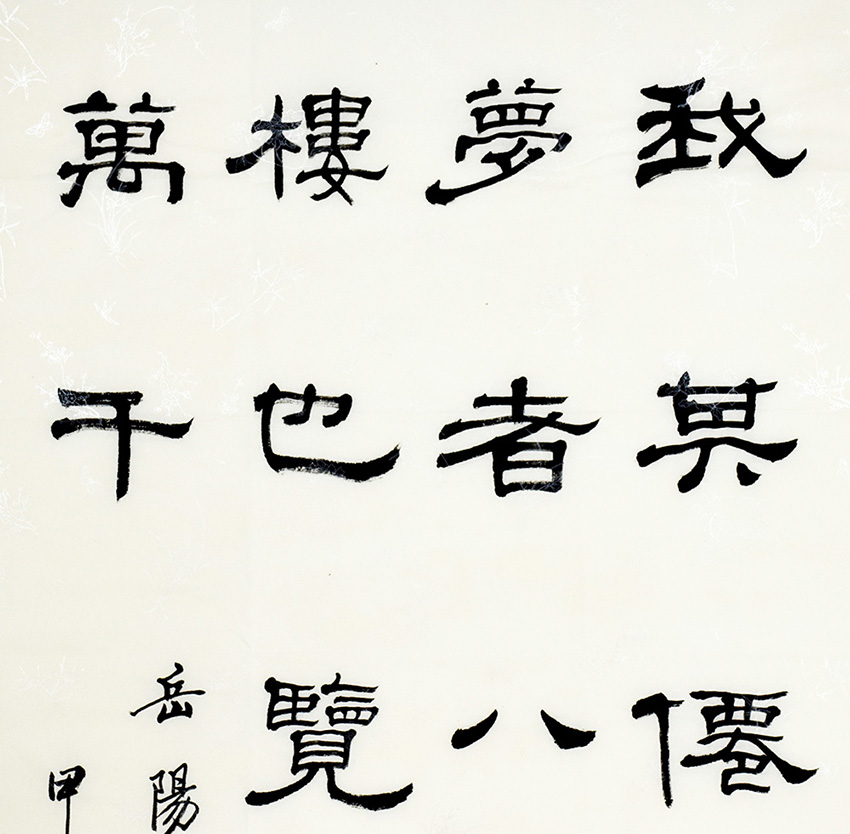 我其僊
夢者八
樓也覽
萬千
岳陽
甲